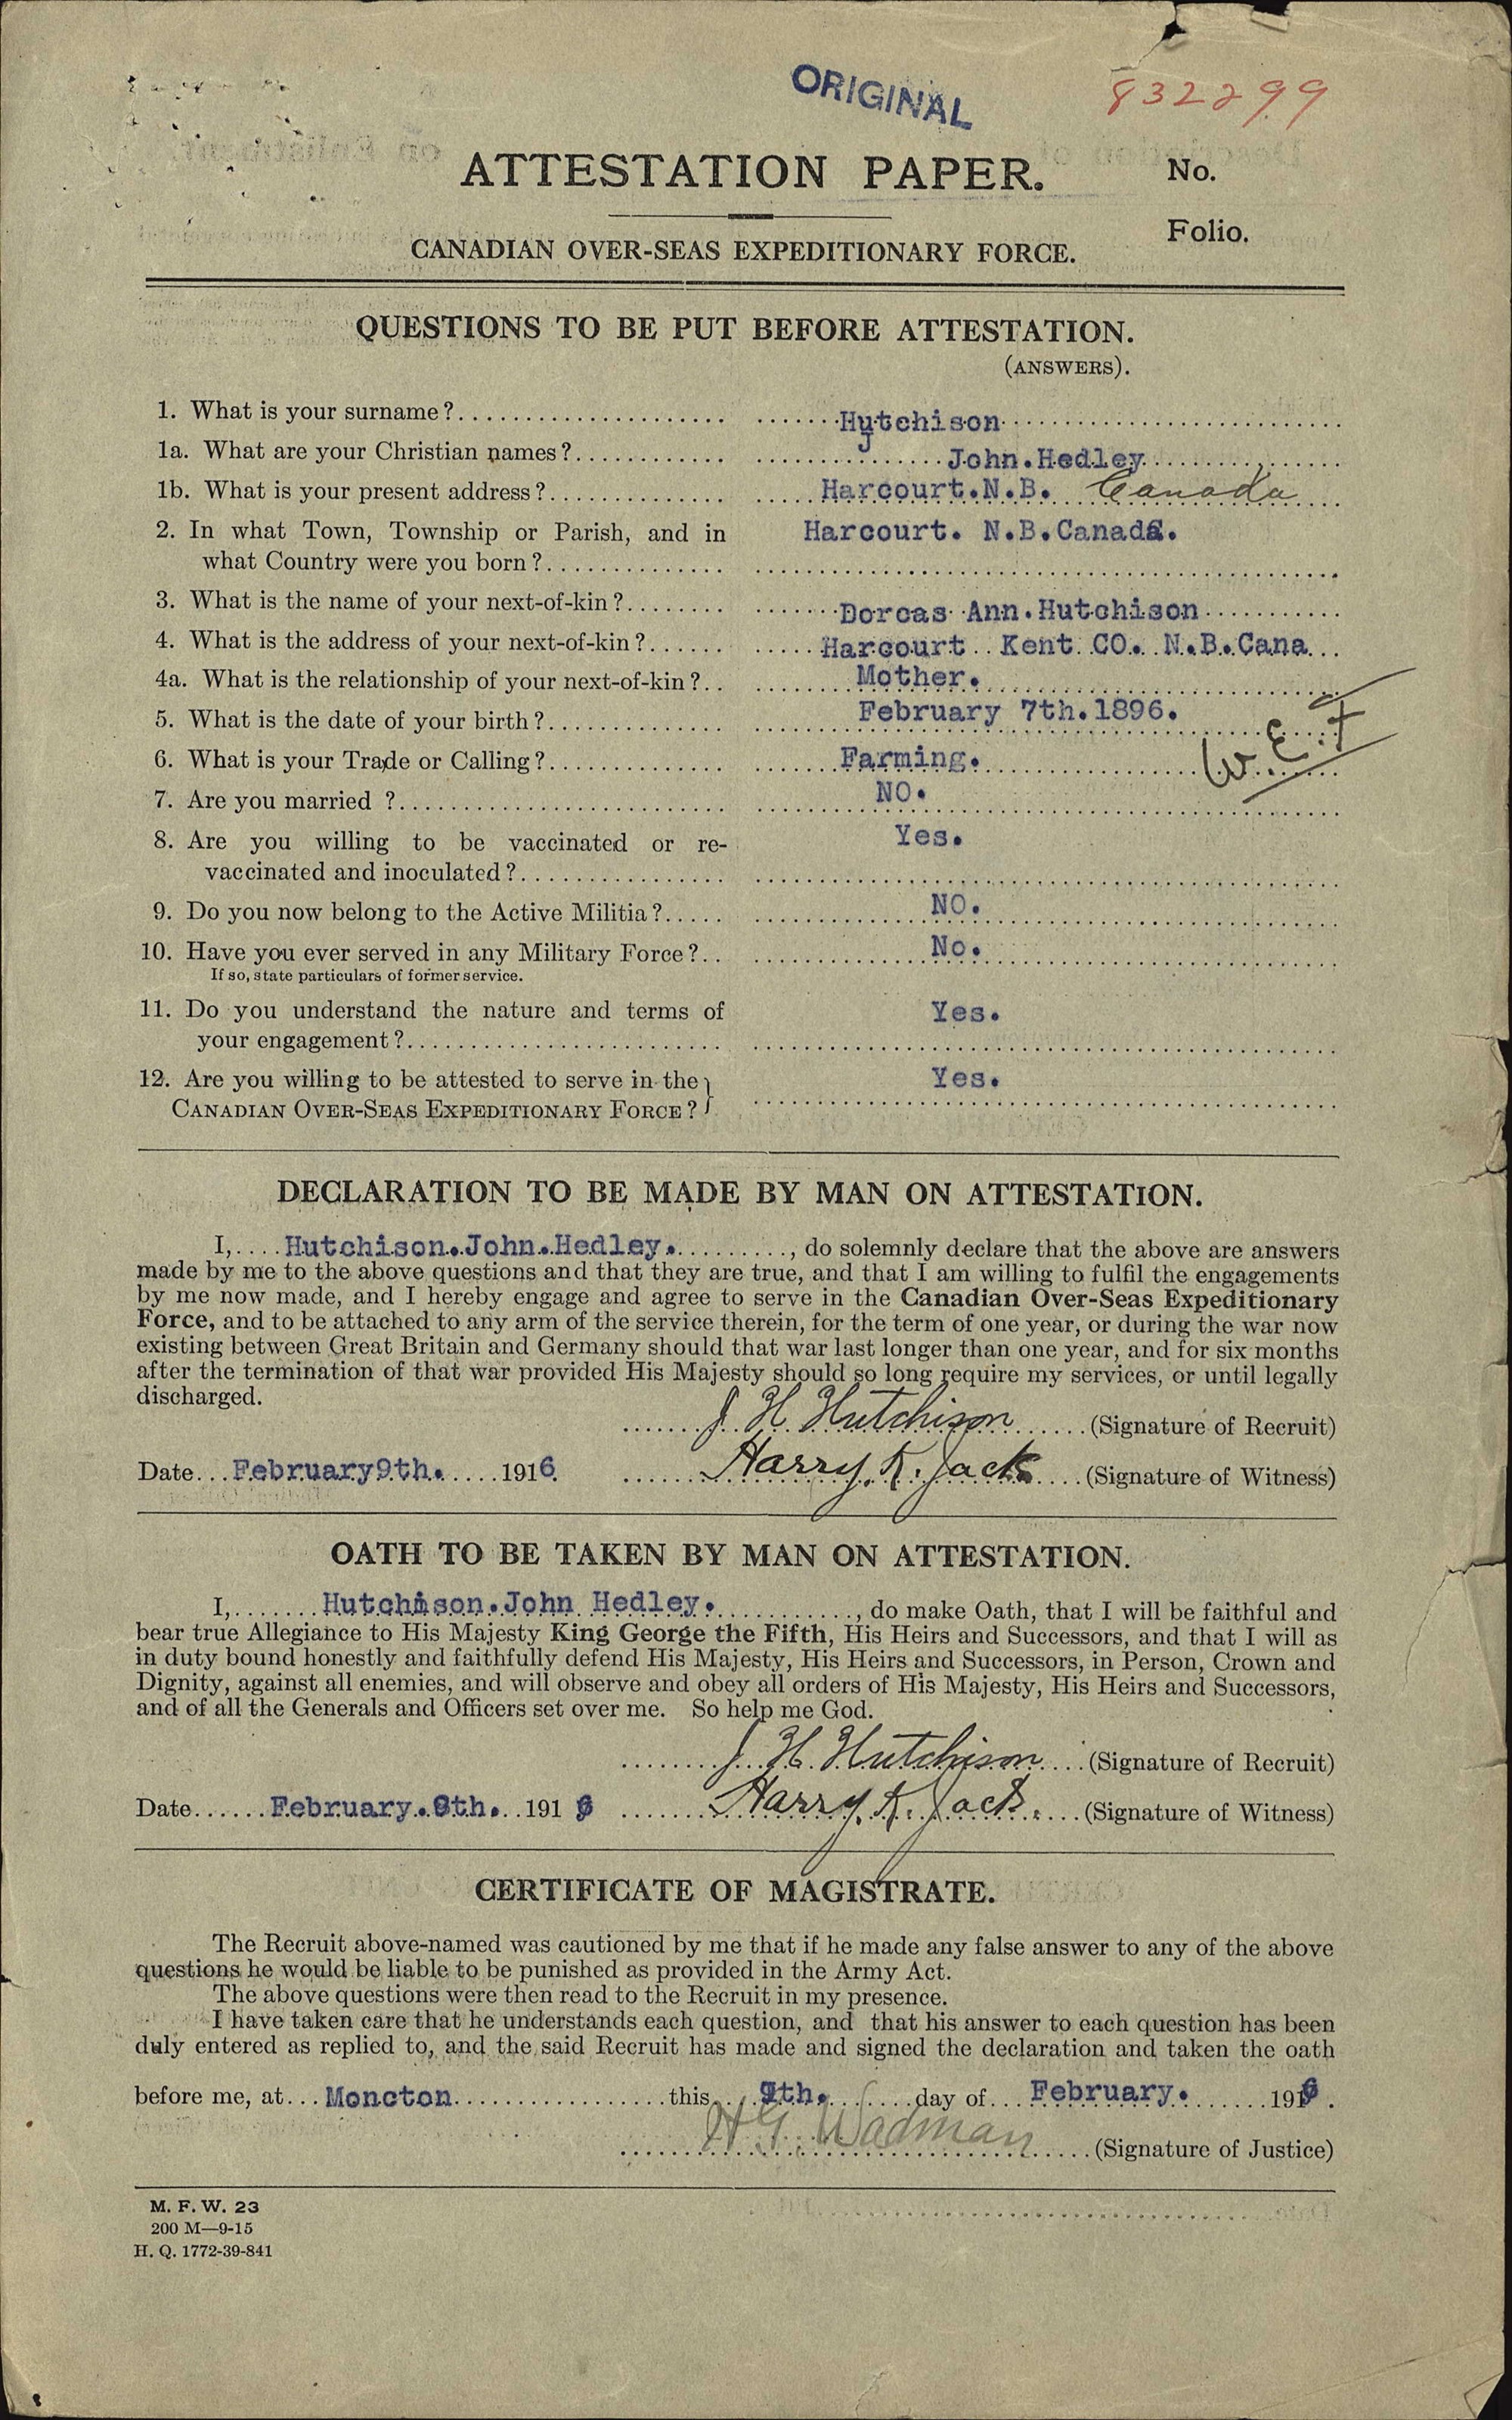 ORIGINAL
832299
ATTESTATION PAPER.
No.
Folio.
CANADIAN OVER-SEAS EXPEDITIONARY FORCE.
QUESTIONS TO BE PUT BEFORE ATTESTATION.
(ANSWERS).
1. What is your surname?.......... Hutchison
1a. What are your Christian names?.......... John.Hedley
1b. What is your present address?.......... Harcourt.N.B. Canada
2. In what Town, Township or Parish, and in Harcourt. N.B.Canada.
what Country were you born?..........
3. What is the name of your next-of-kin?.......... Dorcas Ann.Hutchison
4. What is the address of your next-of-kin?.......... Harcourt Kent CO. N.B.Cana
4a. What is the relationship of your next-of-kin?.. Mother.
5. What is the date of your birth?.......... February 7th.1896.
W.E.F
6. What is your Trade or Calling?.......... Farming.
7. Are you married ?.......... NO.
8. Are you willing to be vaccinated or re- Yes.
vaccinated and inoculated?..........
9. Do you now belong to the Active Militia?..... NO.
10. Have you ever served in any Military Force?.. No.
If so, state particulars of former service.
11. Do you understand the nature and terms of Yes.
your engagement?..........
12. Are you willing to be attested to serve in the Yes.
CANADIAN OVER-SEAS EXPEDITIONARY FORCE?
DECLARATION TO BE MADE BY MAN ON ATTESTATION.
I,....Hutchison.John.Hedley.........., do solemnly declare that the above are answers
made by me to the above questions and that they are true, and that I am willing to fulfil the engagements
by me now made, and I hereby engage and agree to serve in the Canadian Over-Seas Expeditionary
Force, and to be attached to any arm of the service therein, for the term of one year, or during the war now
existing between Great Britain and Germany should that war last longer than one year, and for six months
after the termination of that war provided His Majesty should so long require my services, or until legally
discharged.
J H Hutchison (Signature of Recruit)
Date...February9th......1916. Harry.K.Jack (Signature of Witness)
OATH TO BE TAKEN BY MAN ON ATTESTATION.
I,.......Hutchison.John Hedley..........., do make Oath, that I will be faithful and
bear true Allegiance to His Majesty King George the Fifth, His Heirs and Successors, and that I will as
in duty bound honestly and faithfully defend His Majesty, His Heirs and Successors, in Person, Crown and
Dignity, against all enemies, and will observe and obey all orders of His Majesty, His Heirs and Successors,
and of all the Generals and Officers set over me. So help me God.
J. H. Hutchison (Signature of Recruit)
Date......February.9th...1916 Harry.K.Jack. (Signature of Witness)
CERTIFICATE OF MAGISTRATE.
The Recruit above-named was cautioned by me that if he made any false answer to any of the above
questions he would be liable to be punished as provided in the Army Act.
The above questions were then read to the Recruit in my presence.
I have taken care that he understands each question, and that his answer to each question has been
duly entered as replied to, and the said Recruit has made and signed the declaration and taken the oath
before me, at...Moncton..........this....9th.......day of...February........1916.
H G Wadman (Signature of Justice)
M. F. W. 23
200 M—9-15
H. Q. 1772-39-841